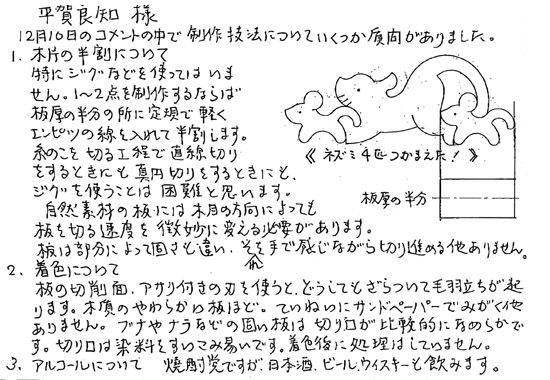 平賀良知 様
12月10日のコメントの中で制作技法についていくつか質問がありました。
1. 木片の半割について
特にジグなどを使ってはいま
せん。1〜2点を制作するならば
板厚の半分の所に定規で軽く
エンピツの線を入れて半割します。
糸のこを切る工程で直線切り
をするときにも真円切りをするときにも、
ジグを使うことは困難と思います。
自然素料の板には木目の方向によっても
板を切る速度を微妙に変える必要があります。
板は部分によって固さも違い、それを手で感じながら切り進める他ありません。
《ネズミ4匹つかまえた!》
板厚の半分
2. 着色について
板の切削面、アサリ付きの刃を使うと、どうしてもざらついて毛羽立ちが起
ります。木質のやわらかい板ほど。ていねいにサンドペーパーでみがく他
ありません。ブナやナラなどの固い板は切り口が比較的になめらかで
す。切り口は染料をすいこみ易いです。着色後に処理はしていません。
3. アルコールについて 焼酎党ですが、日本酒、ビール、ウイスキーも飲みます。